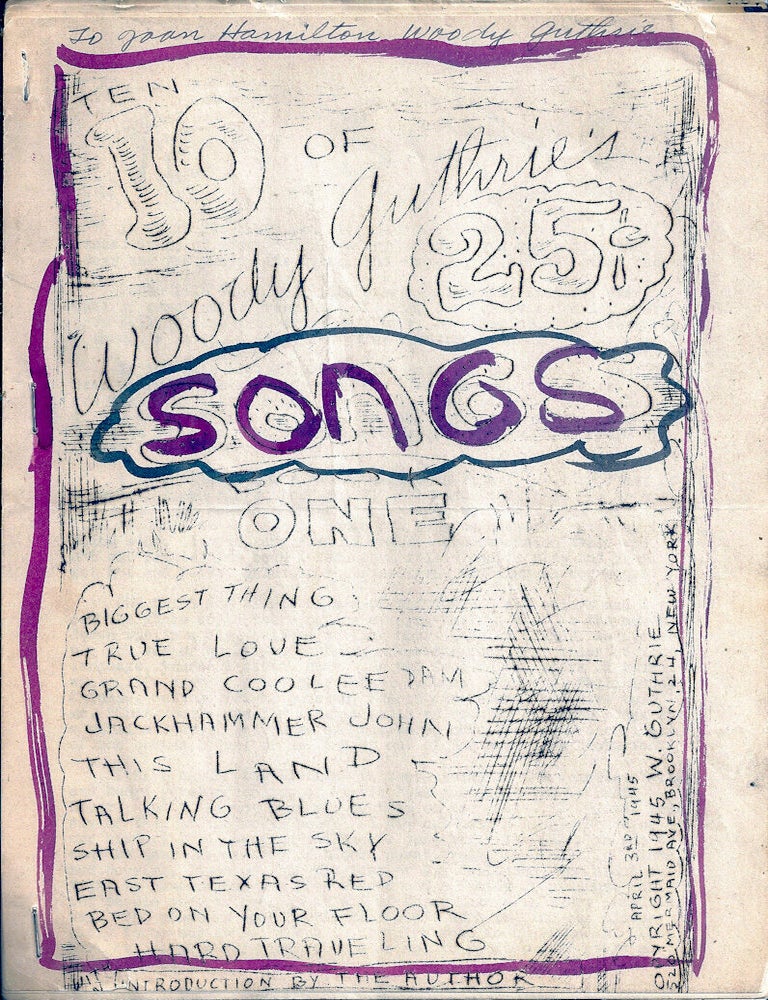 To Joan Hamilton Woody Guthrie
TEN
10 OF
Woody Guthrie's
25¢
SONGS
ONE
BIGGEST THING
TRUE LOVE
GRAND COOLEE DAM
JACKHAMMER JOHN
THIS LAND
TALKING BLUES
SHIP IN THE SKY
EAST TEXAS RED
BED ON YOUR FLOOR
HARD TRAVELING
WITH INTRODUCTION BY THE AUTHOR
APRIL 3RD 1945
COPYRIGHT 1945 W. GUTHRIE
MERMAID AVE., BROOKLYN, 24, NEW YORK